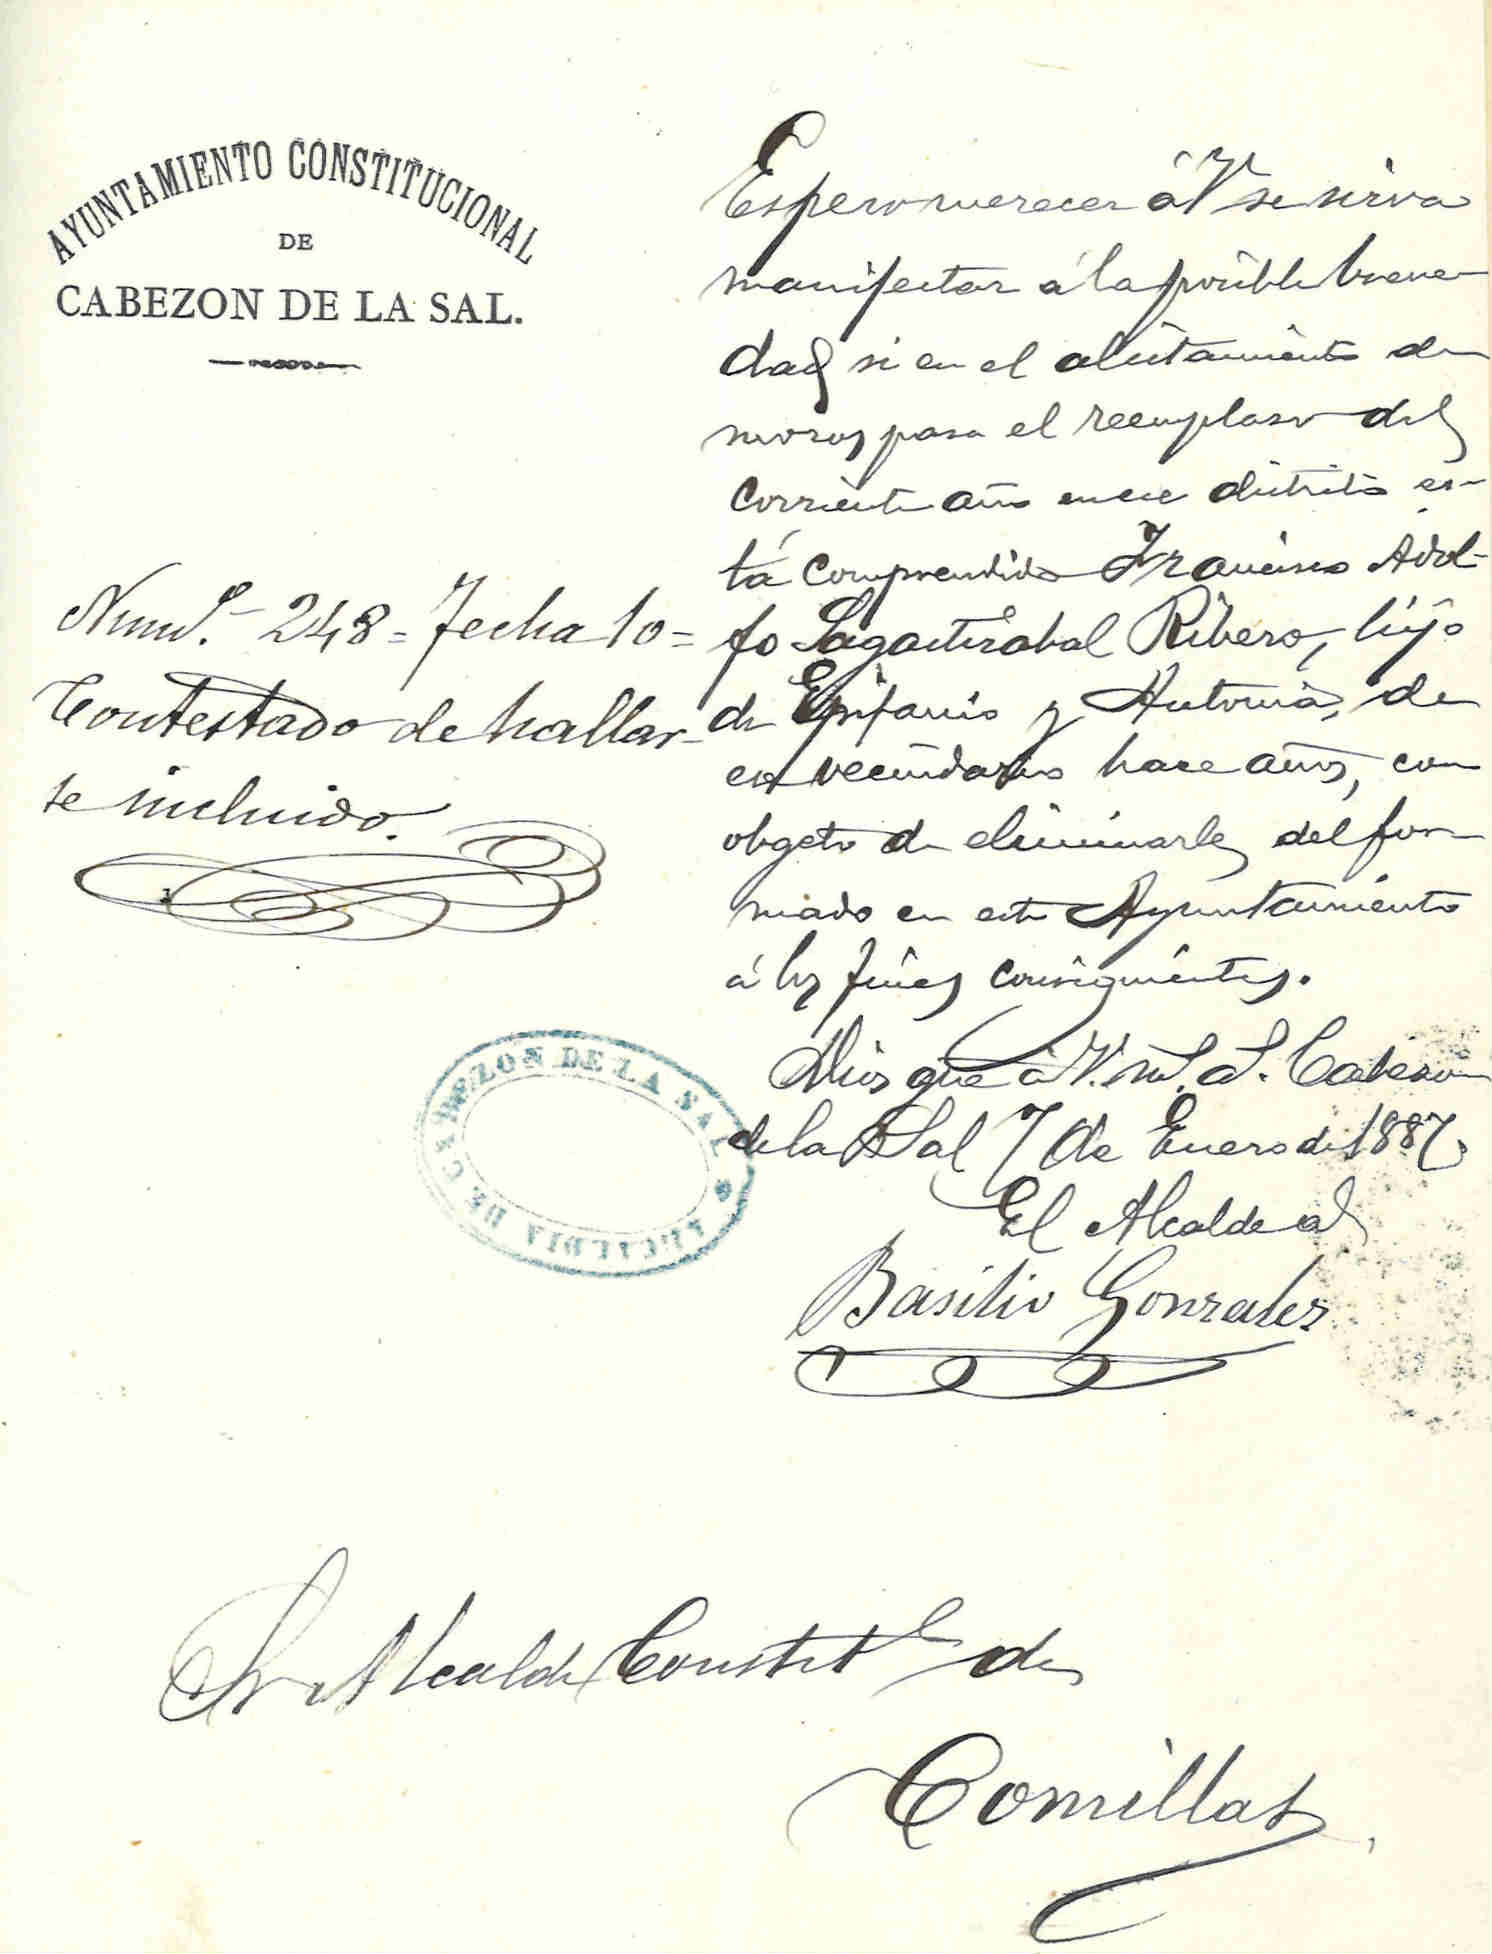 AYUNTAMIENTO CONSTITUCIONAL
DE
CABEZON DE LA SAL.
Espero merecer á V se sirva
manifestar á la posible breve-
dad si en el alistamiento de
mozos para el reemplaso del
corriente año en ese distrito es-
tá comprendido Francisco Adol-
fo Sagastizabal Ribero, hijo
de Epifanio y Antonia, de
ese vecindario hace años, con
objeto de eliminarle del for-
mado en este Ayuntamiento
á los fines consiguientes.
Dios gue á V. m.s a.s Cabezon
de la Sal 7 de Enero de 1887.
El Alcalde al
Basilio Gonzalez
Num.º 248 = Fecha 10 =
Contestado de hallar-
se incluido.
ALCALDIA DE CABEZON DE LA SAL
Sr Alcalde Constit.l de
Comillas